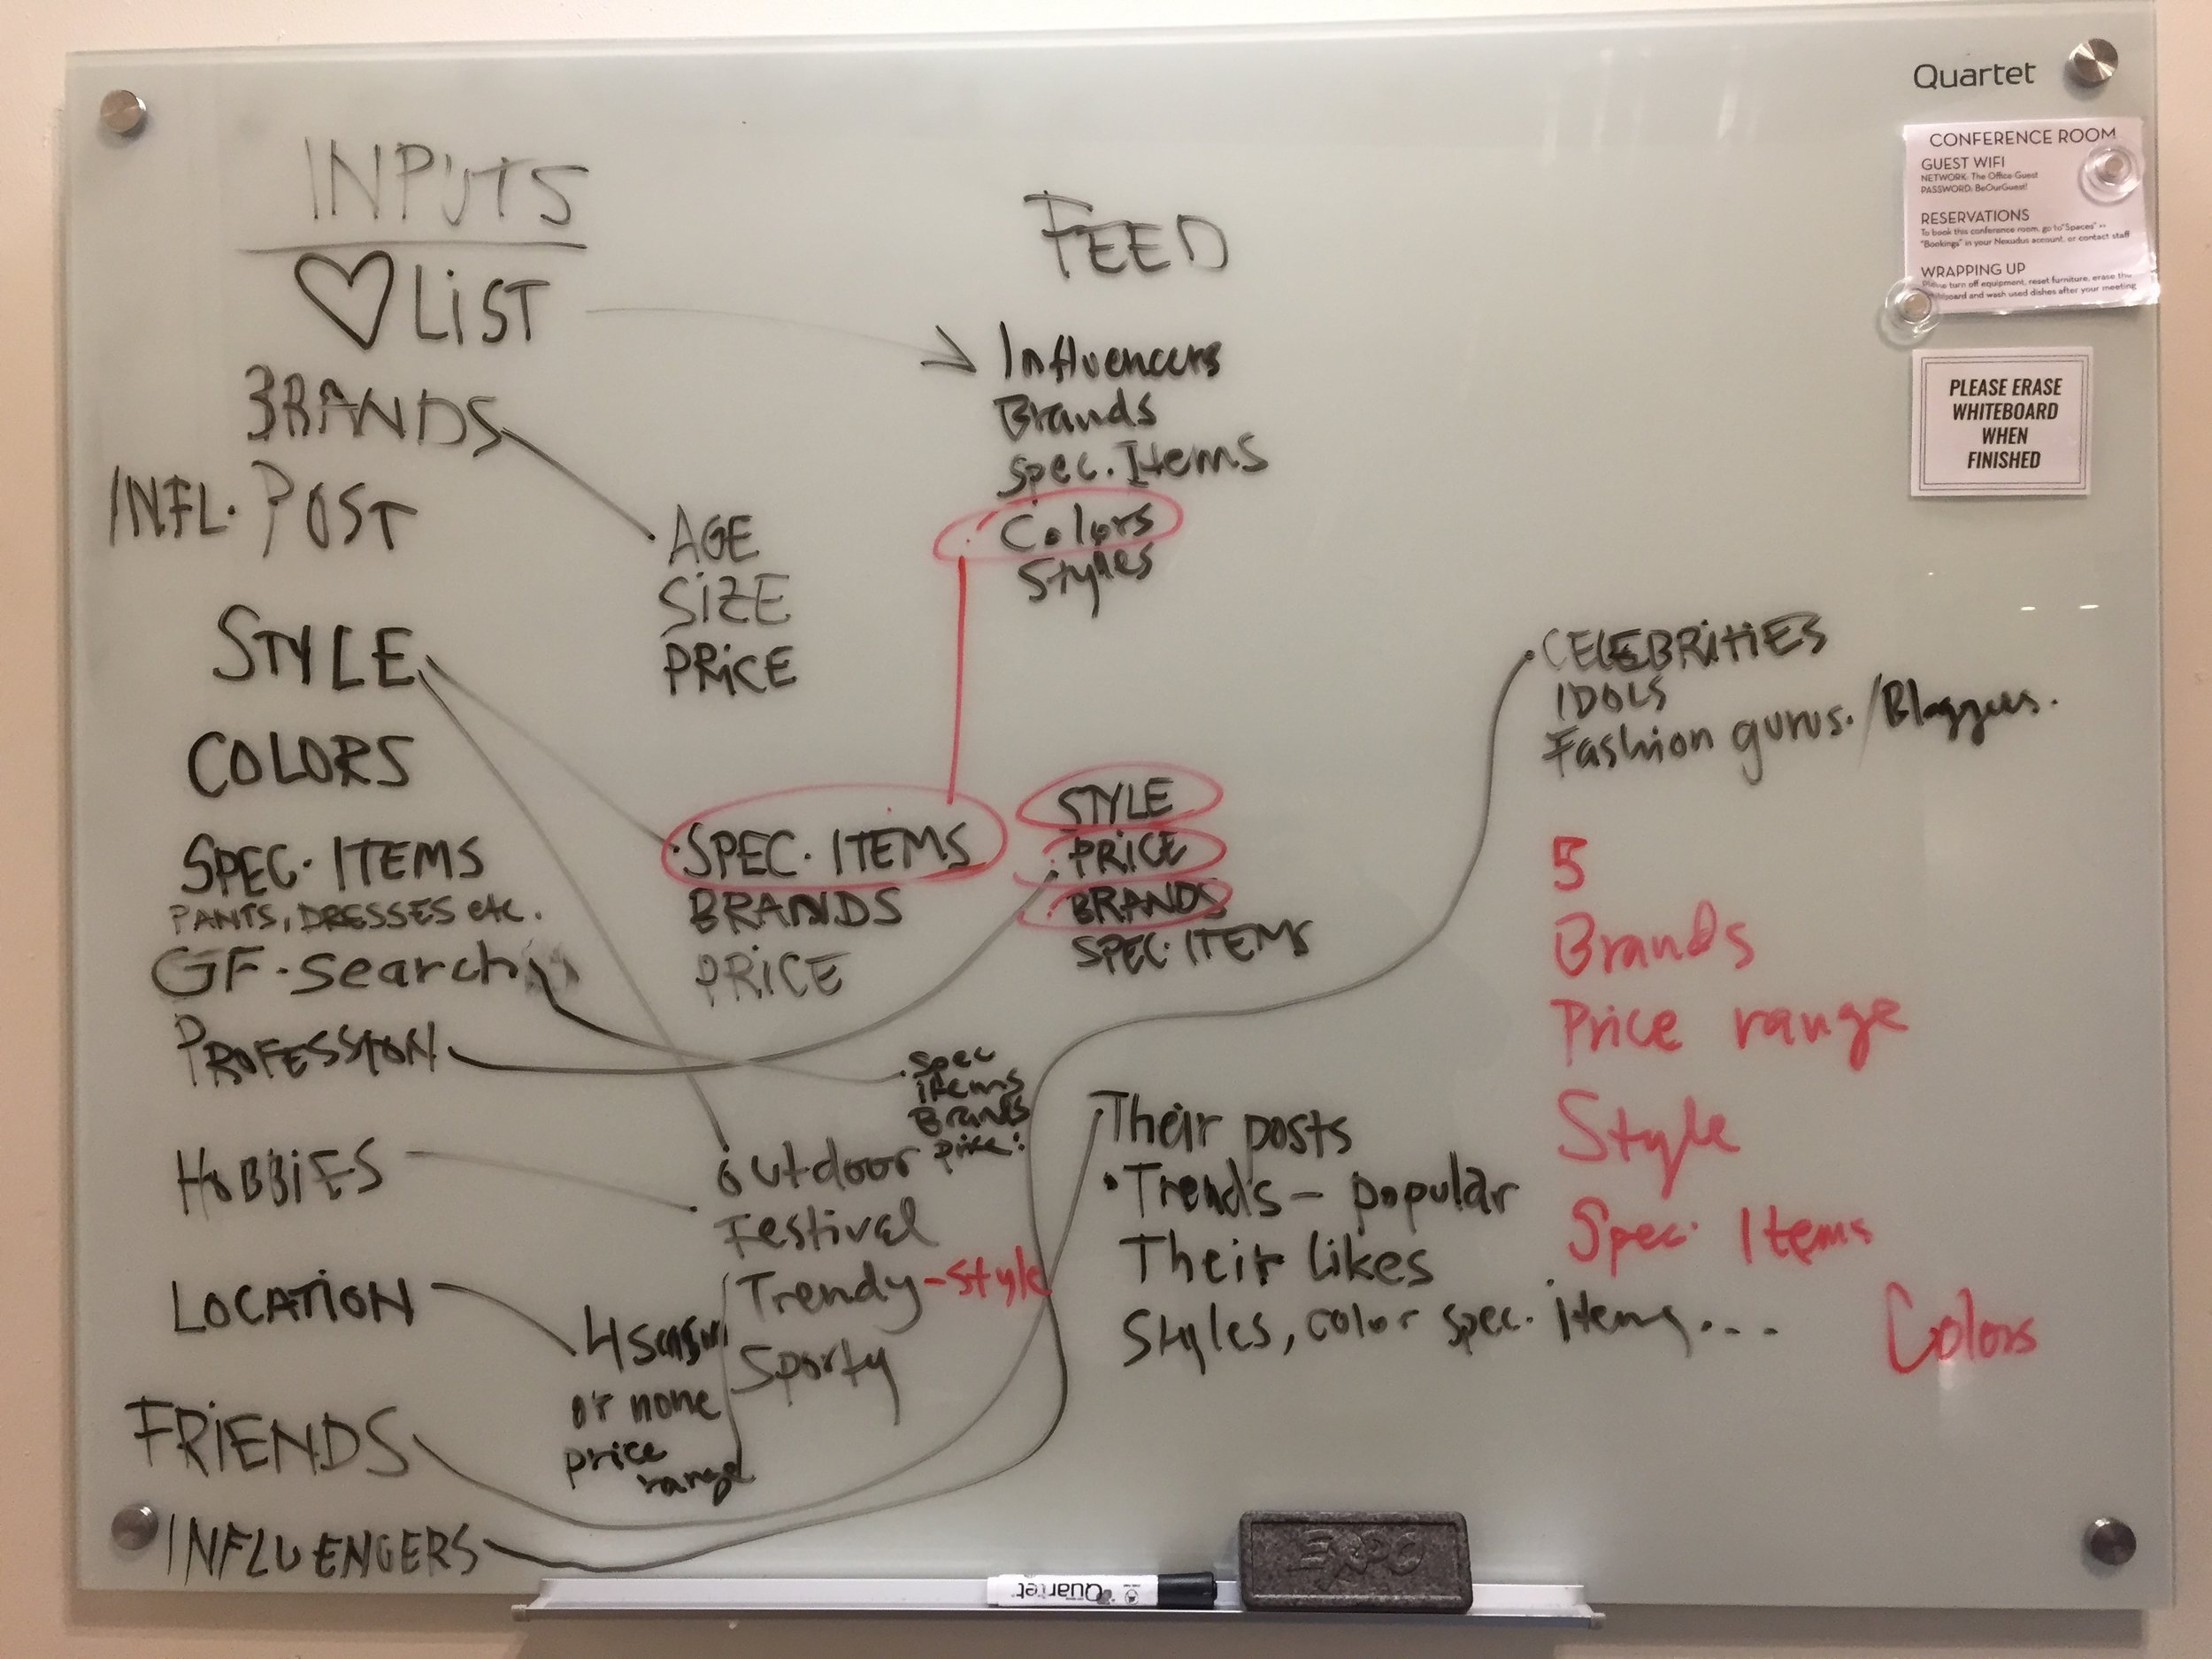 Quartet
CONFERENCE ROOM
GUEST WIFI
NETWORK: The Office Guest
PASSWORD: BeOurGuest!
RESERVATIONS
To book this conference room, go to "Spaces"
"Bookings" in your Nexudus account, or contact staff
WRAPPING UP
Please turn off equipment, reset furniture, erase the
and wash used dishes after your meeting
PLEASE ERASE
WHITEBOARD
WHEN
FINISHED
INPUTS
♡ LIST
BRANDS
INFL. POST
STYLE
COLORS
SPEC. ITEMS
PANTS, DRESSES etc.
GF-search
PROFESSION
HOBBIES
LOCATION
FRIENDS
INFLUENCERS
AGE
SIZE
PRICE
SPEC. ITEMS
BRANDS
PRICE
FEED
Influencers
Brands
Spec. Items
Colors
Styles
STYLE
PRICE
BRANDS
SPEC. ITEMS
Spec
items
Brands
price
outdoor
Festival
Trendy - style
Sporty
4
or none
price
range
Their posts
• Trends - popular
Their likes
Styles, color spec. items...
CELEBRITIES
IDOLS
Fashion gurus. / Bloggers.
5
Brands
Price range
Style
Spec. Items
Colors
EXPO
Quartet